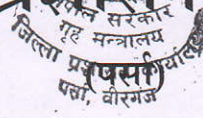 नेपाल सरकार
गृह मन्त्रालय
जिल्ला प्रशासन कार्यालय
(पर्सा)
पर्सा, वीरगंज